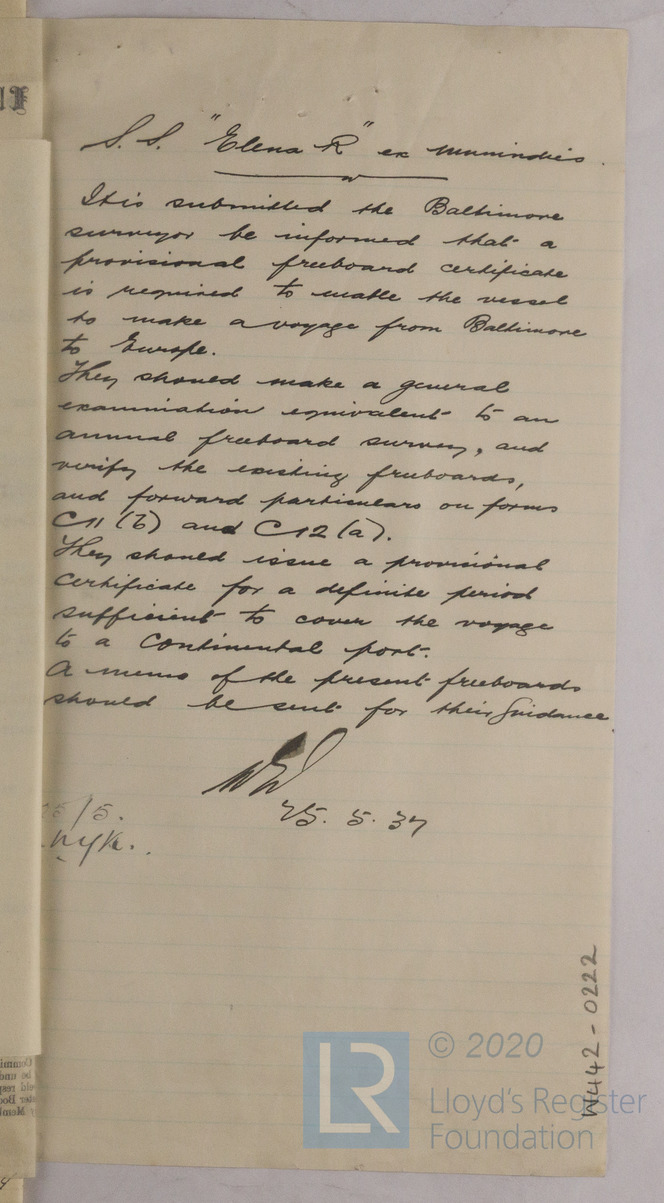 S.S. "Elena R" ex Munindies.
It is submitted the Baltimore
surveyor be informed that a
provisional freeboard certificate
is required to enable the vessel
to make a voyage from Baltimore
to Europe.
They should make a general
examination equivalent to an
annual freeboard survey, and
verify the existing freeboards,
and forward particulars on forms
C11 (b) and C12 (a).
They should issue a provisional
certificate for a definite period
sufficient to cover the voyage
to a Continental port.
A memo of the present freeboards
should be sent for their guidance.
25.5.37
25/5.
W442-0222
© 2020
LR
Lloyd's Register
Foundation